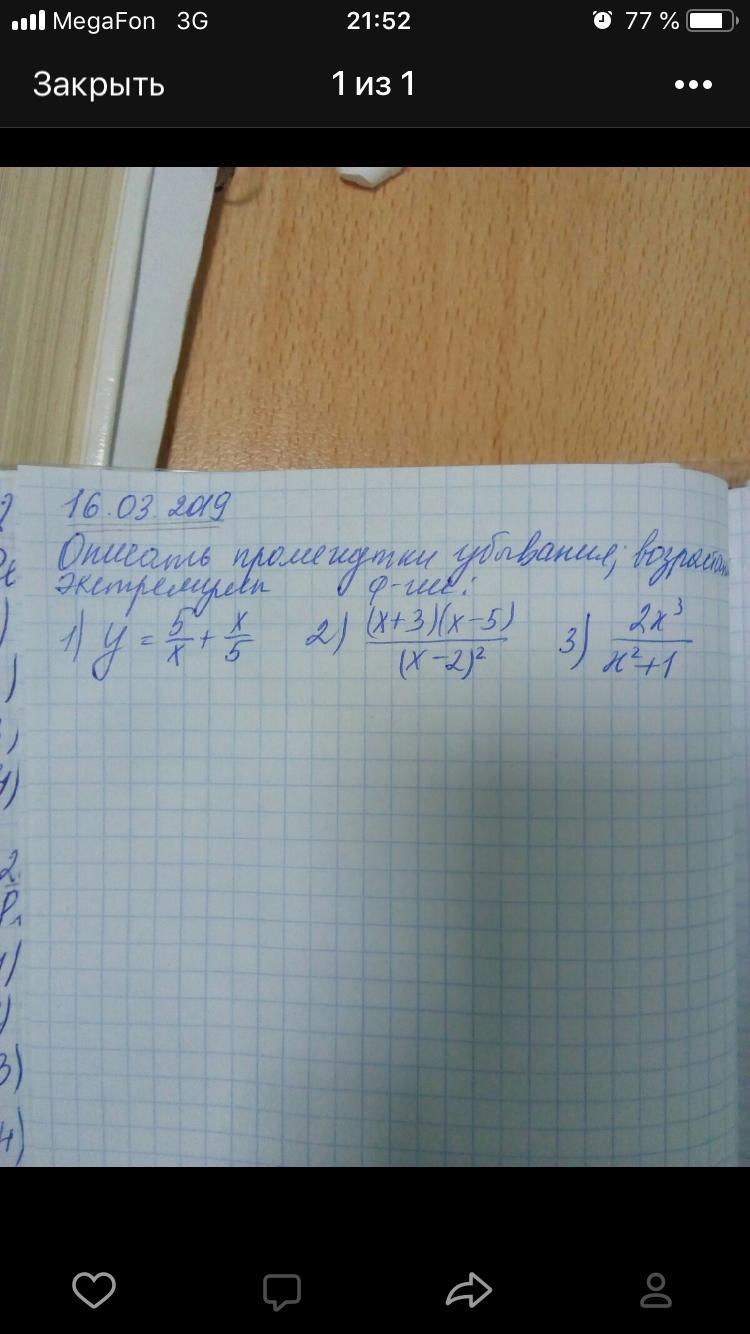 MegaFon 3G 21:52 77 %
Закрыть 1 из 1 •••
16.03.2019
Описать промежутки убывания, возрастан
экстремумы ф-ции:
1) y = 5/x + x/5 2) (x+3)(x-5)/(x-2)² 3) 2x³/x²+1
2
1)
3)
4)